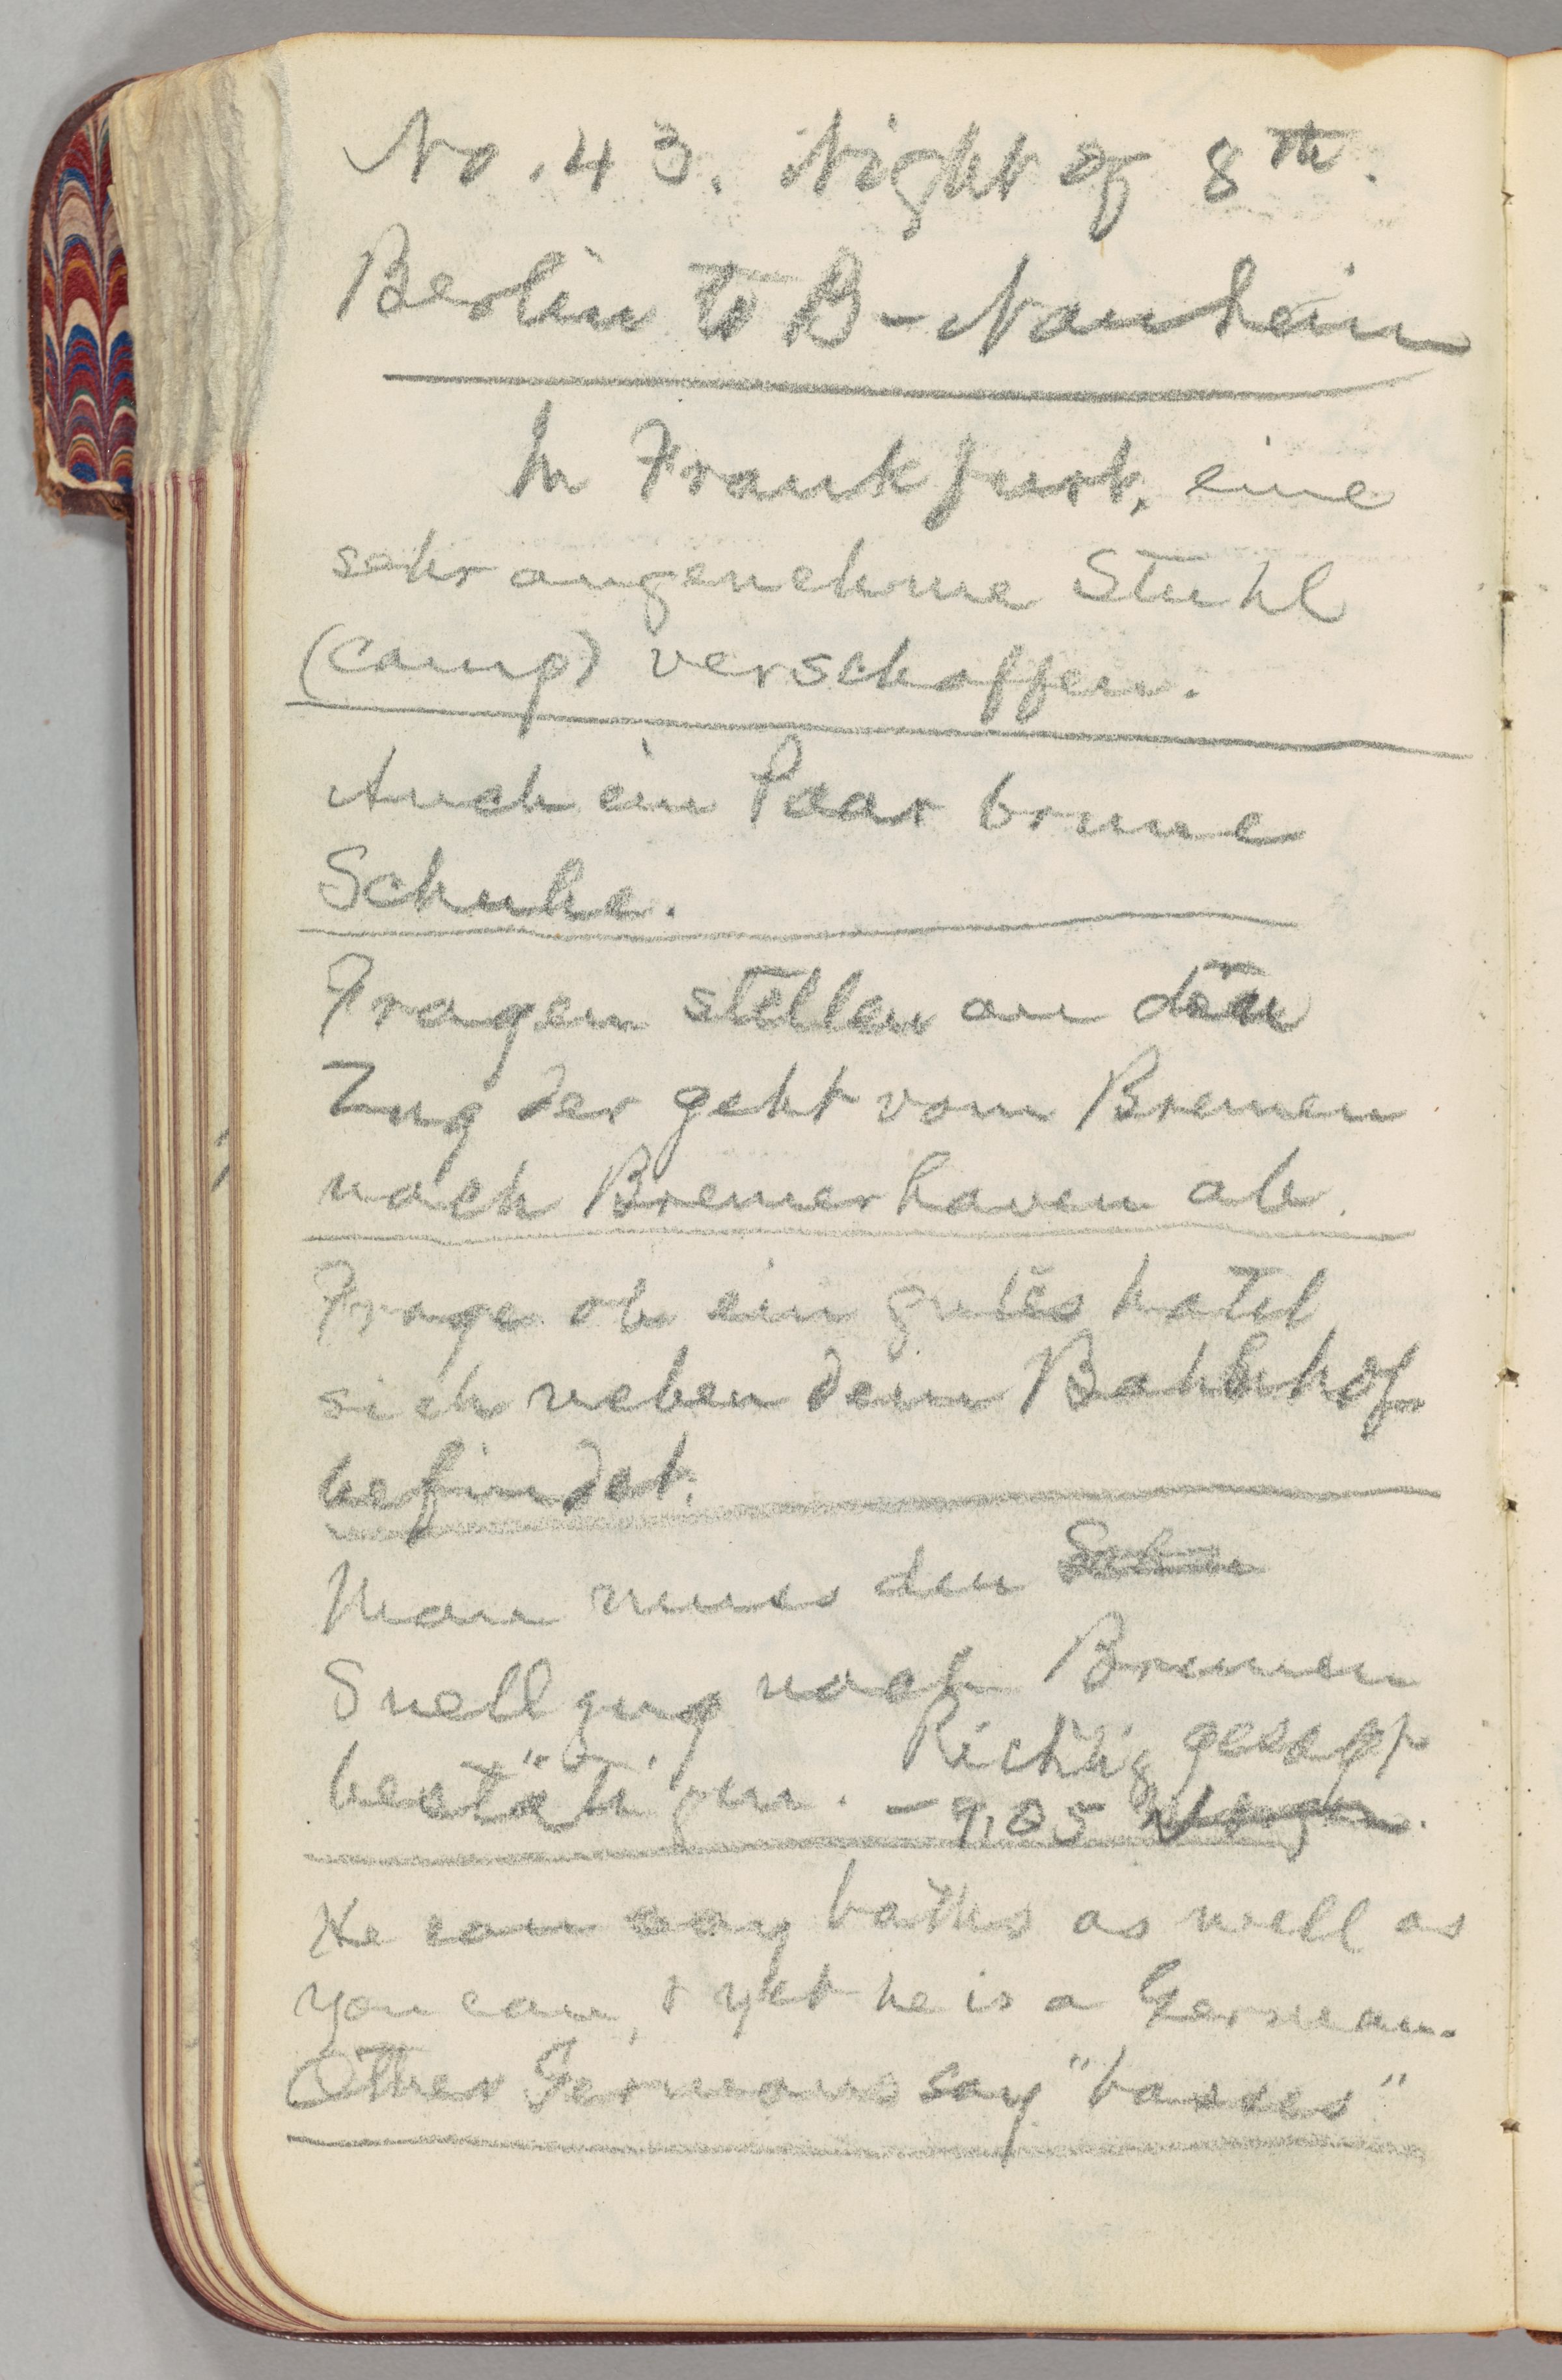 No. 43. Night of 8th.
Berlin to B-Nauheim
In Frankfurt, eine
sehr angenehme Stuhl
(camp) verschaffen.
Auch ein Paar brune
Schuhe.
Fragen stellen an den
Zug der geht vom Bremen
nach Bremerhaven ab.
Frage ob ein gutes hotel
sich neben dem Bahnhof
befindet.
Man mus den
Snellzug nach Bremen
bestätigen. Richtig gesagt
– 9,05
He can say baths as well as
you can, & yet he is a German.
Other Germans say "basses"